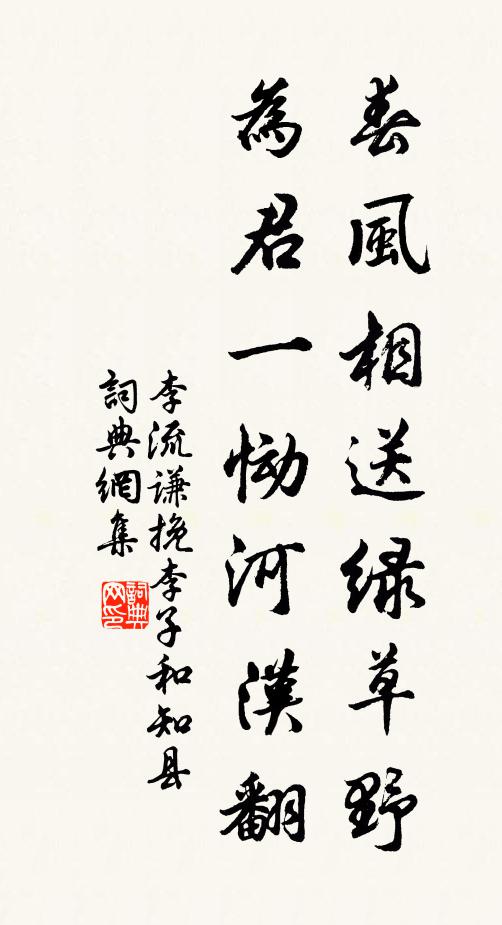 春風相送绿草野
為君一恸河漢翻
李流谦挽李子和知县
詞典網集
詞典网印